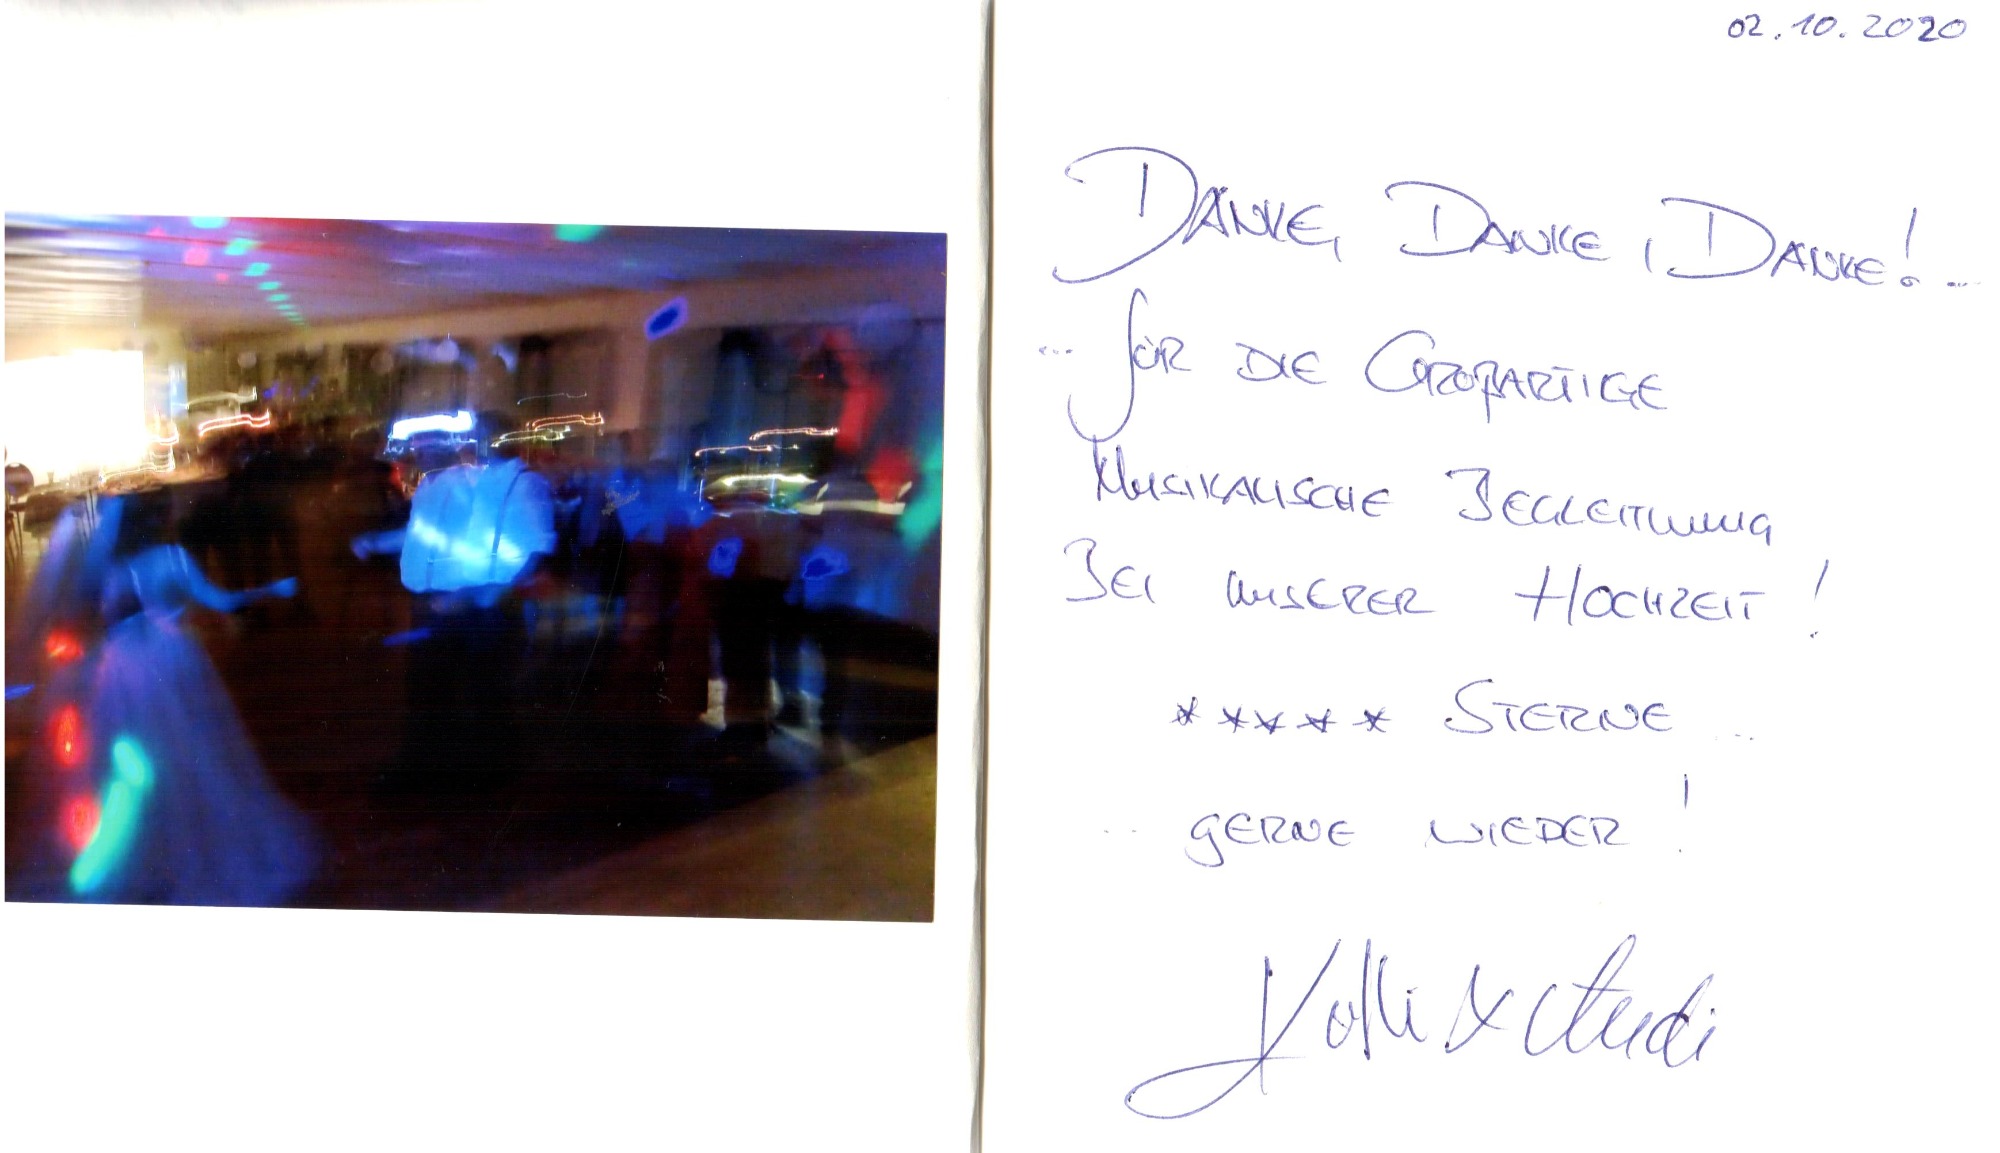 02.10.2020
DANKE, DANKE, DANKE! ...
... für DIE GROßARTIGE
MUSIKALISCHE BEGLEITUNG
BEI UNSERER HOCHZEIT!
***** STERNE ...
.. GERNE WIEDER!
&